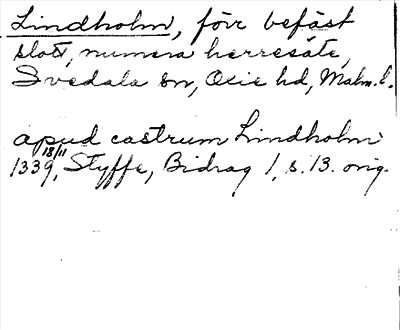 Lindholm, förr befäst
slott, numera herresäte,
Svedala sn, Oxie hd, Malm. l.
apud castrum Lindholm
1339 18/11, Styffe, Bidrag 1, s. 13. orig.